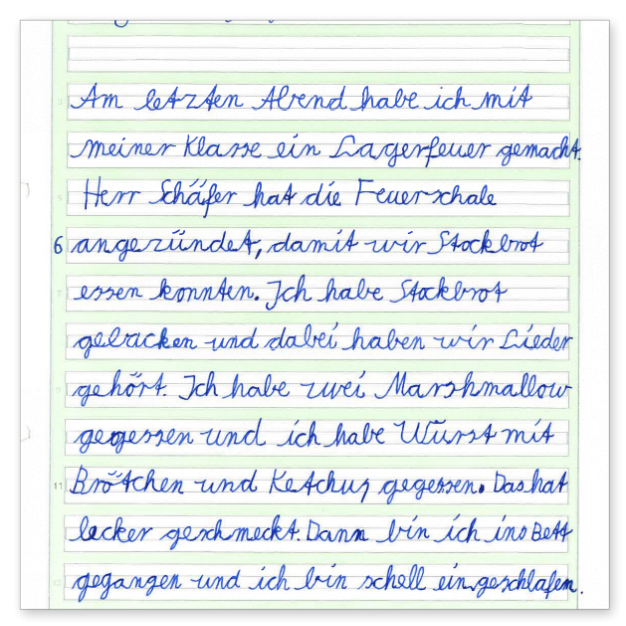 Am letzten Abend habe ich mit
meiner Klasse ein Lagerfeuer gemacht.
Herr Schäfer hat die Feuerschale
6 angezündet, damit wir Stockbrot
essen konnten. Ich habe Stockbrot
gebacken und dabei haben wir Lieder
gehört. Ich habe zwei Marshmallow
gegessen und ich habe Würst mit
11 Brötchen und Ketchup gegessen. Das hat
lecker geschmeckt. Dann bin ich ins Bett
gegangen und ich bin schell eingeschlafen.